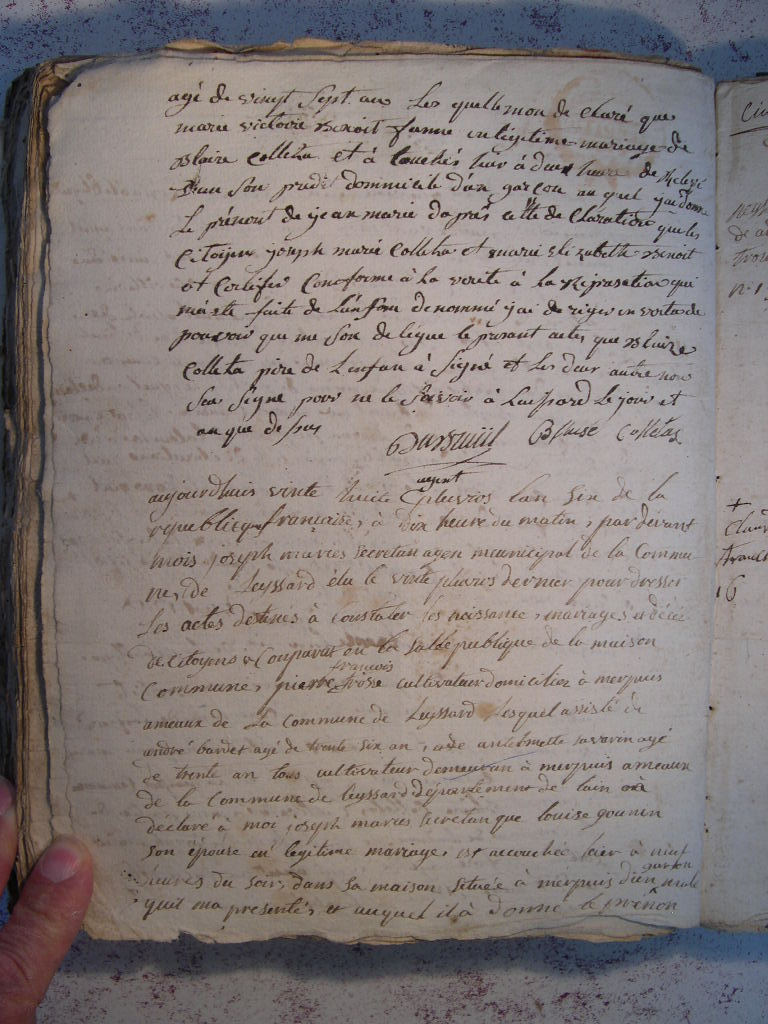 agé de vingt sept ans Les quelle mon de Claré que
marie victoire Benoit famme en legitime mariage de
Blaise Colleta et à Couchés hier à deux heure de
dan son prudit dommicile d'un garcon au quel jai donne
Le prénont de jean marie daprés cette de Claration que les
Citoijen joseph marie Colleta et marie Elizabette Benoit
et Certifier Conforme à la verité à la Reprasation qui
maèste faite de Lénfan denommé jai de riger en vertu de
pouvoir qui me son de ligue le present actes que Blaize
Colleta pire de Lenfan à Signé et Les deux autre non
Seu Signé pour ne le Savoir à Leissard Le jour et
an que dessus
Blaise Colletas
agent
aujourdhuis vinte huite pluvios lan Six de la
republique française, à dix heure du matin, par devant
mois joseph maries Secretan agen meunicipal de la Commu
ne, de Leyssard élu le vinte pluvios dernier pour dresser
Les actes destines à Constater les naissance, mariages et décéz
de Citoyens & Comparut en la Salle publique de la maison
françois
Commune, pierre cultivateur domicilier à merpuis
ameaux de La Commune de Leyssard Lesquel assisté de
andré bardet agé de trente Six an, & de antelmette savarin agé
de trente an tous cultivateur demeuran à merpuis ameaux
de la Commune de leyssard département de lain oà
déclaré à moi joseph maries Secretan que louise gounin
Son épouse en legitime mariage, est accouchée hier à neuf
garson
heures du Soir, dans Sa maison Située à merpuis d'un male
quil ma presentés, et auquel il à donné le prénon
Claud
16